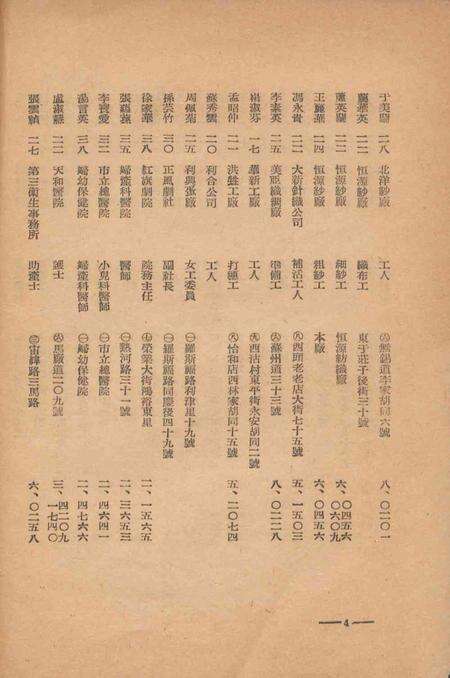 于美蘭 二八 北洋紗廠 工人 ㊅無錫道李家胡同六號 八、〇二〇一
蘭華英 二二 恒源紗廠 織布工 東于莊子後街三十號
蘭英 二二 恒源紗廠 細紗工 恒源紡織廠 六、〇四五六 六、〇六〇九
王麗華 二四 恒源紗廠 粗紗工 本廠 六、〇四五六
馮永貴 二二 大新針織公司 補活工人 ㊇西頭老老店大街七十五號 五、一五〇三
李素英 二五 美亞織綢廠 準備工 ㊅蘇州道三十三號 八、〇二二八
淑芬 一七 華新工廠 工人 ㊈西沽村東平街永安胡同二號
孟昭仲 二一 洪盤工廠 打穗工 ㊇怡和店西林家胡同十五號 五、二〇七四
蘇秀雲 二〇 利合公司 工人
周佩菊 二五 利興蛋廠 女工委員 ㊀羅斯福路利津里十九號
孫芸竹 三〇 正風劇社 副社長 ㊀羅斯福路同慶後四十九號
徐家華 三八 紅旗劇院 院務主任 ㊉榮業大街鴻裕東里 二、一五六五
張蘊蓀 三五 婦產科醫院 醫師 ㊀熱河路三十一號 二、三六五三
李寶愛 三二 市立總醫院 小兒科醫師 ㊀市立總醫院 二、四六四一
言英 三八 婦幼保健院 婦產科醫師 ㊀婦幼保健院 二、四七六六
盧淑 二二 天和醫院 護士 ㊅馬廠道二〇九號 三、四二〇九 一七四〇
張雲穎 二七 第三衛生事務所 助產士 ㊂宙緯路三馬路 六、〇二五八
—4—